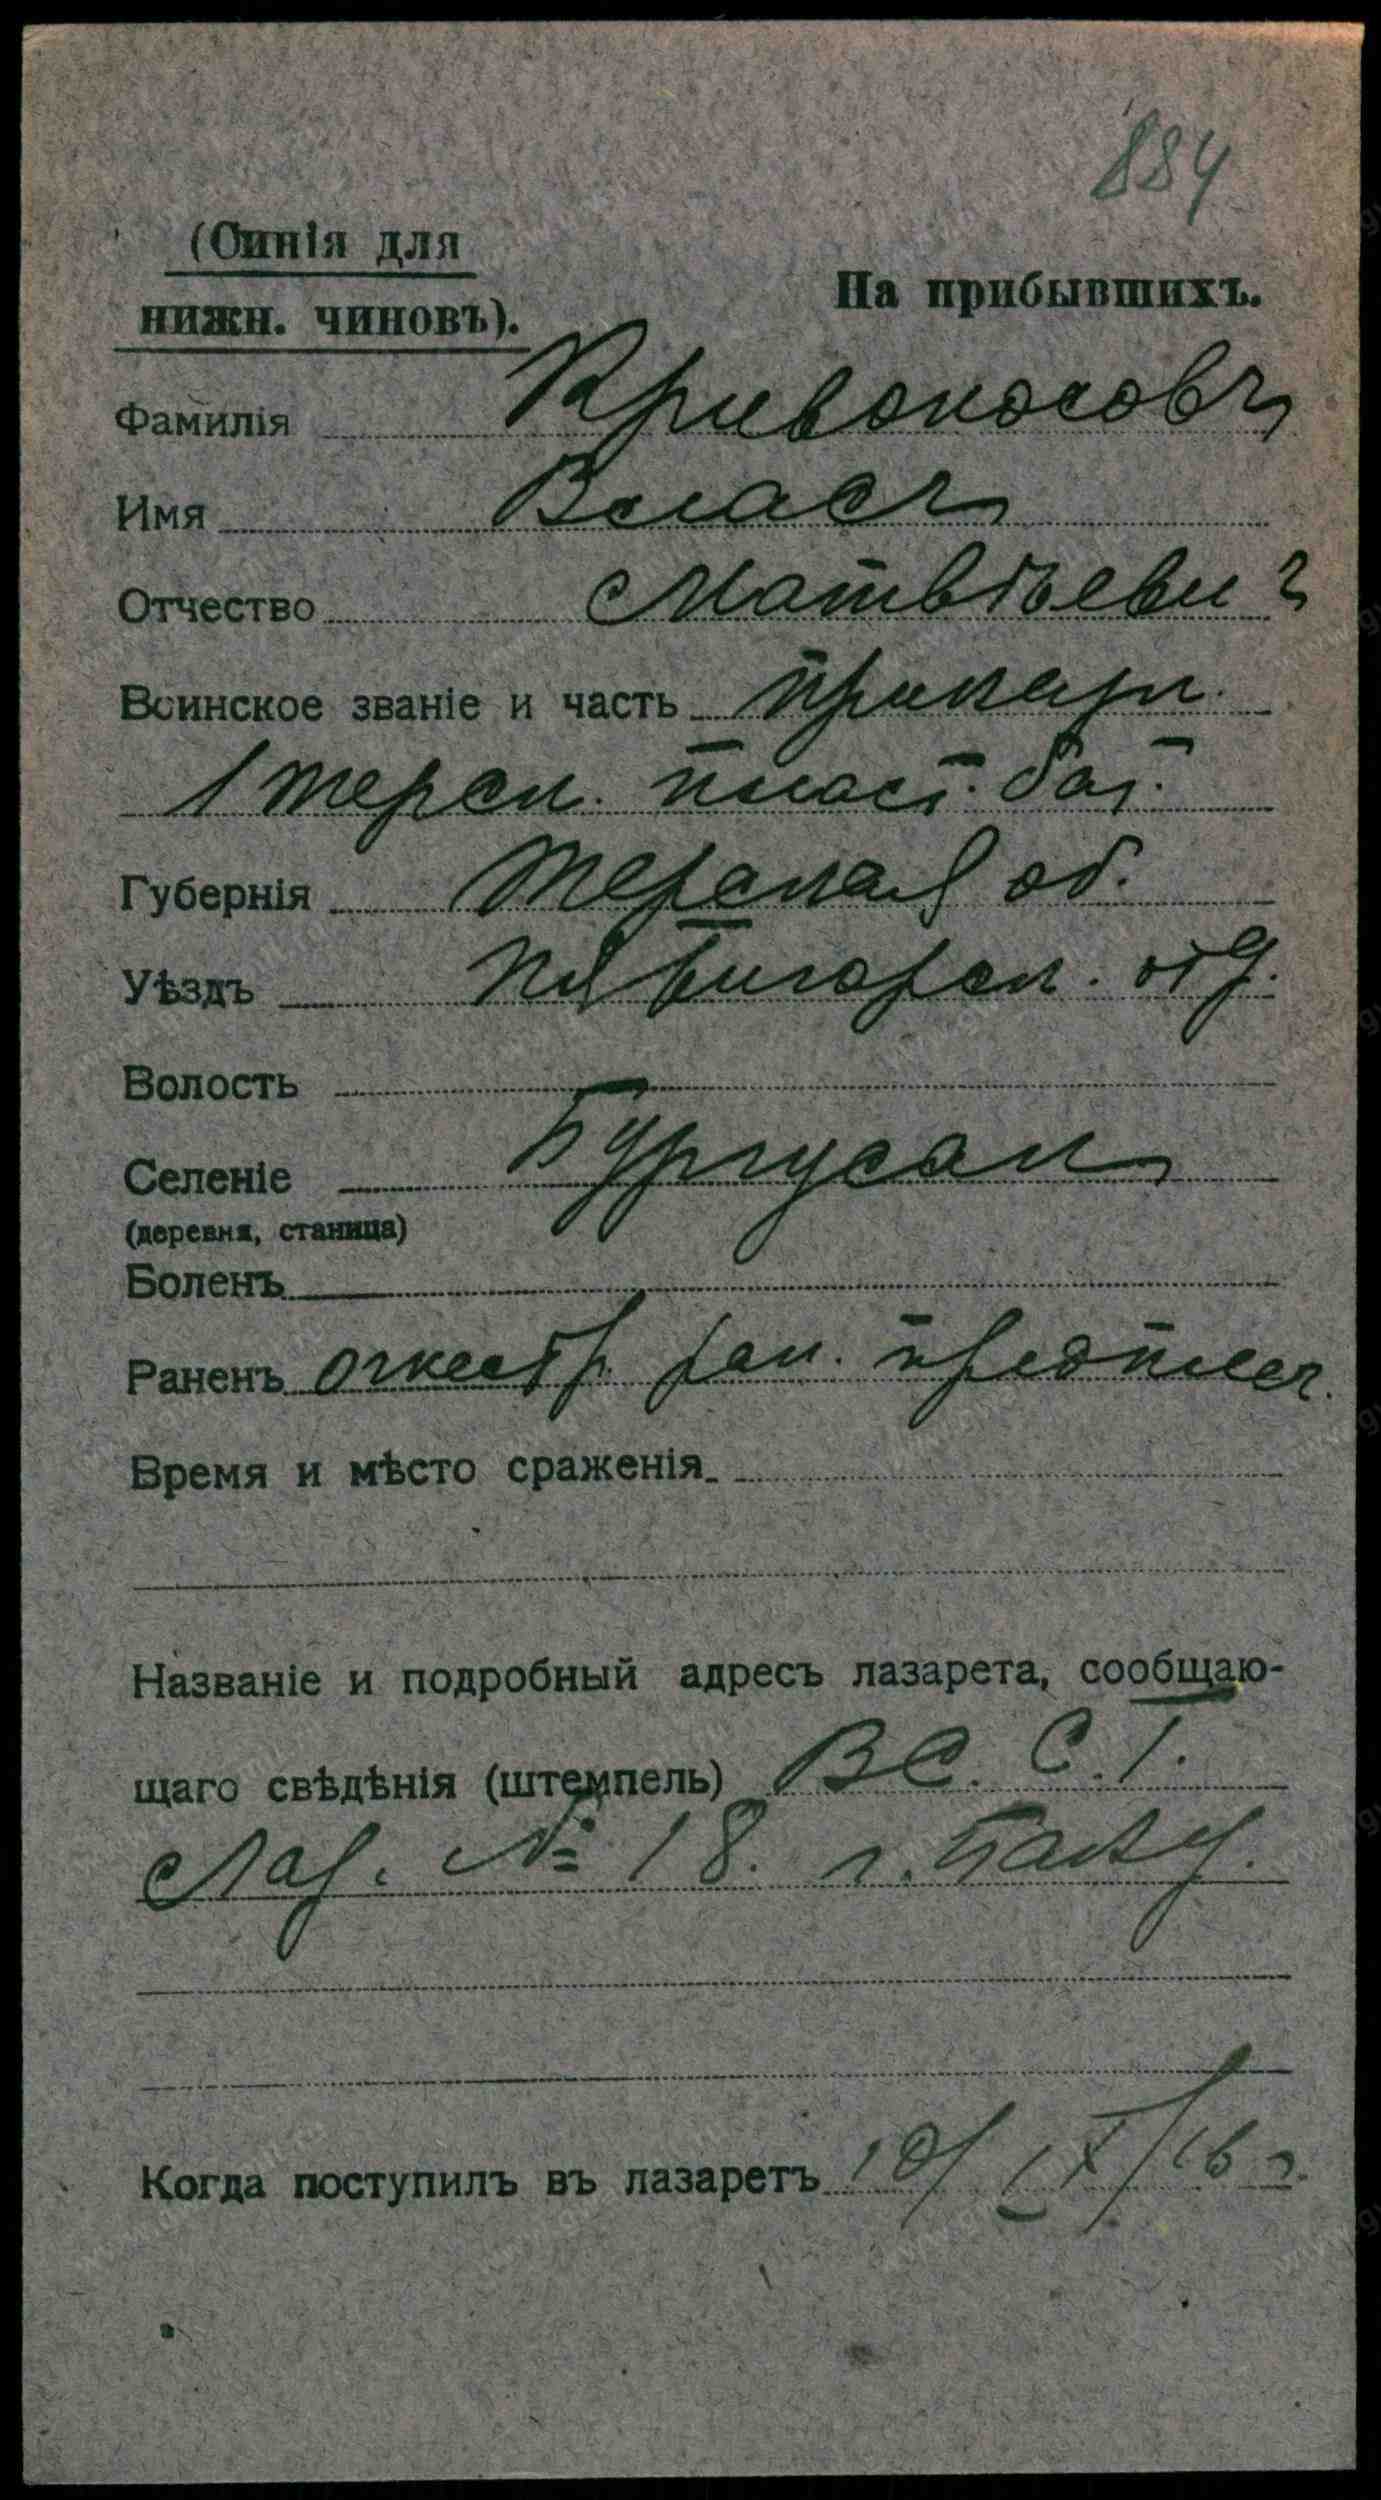 884
(Синія для
нижн. чиновъ).
На прибывшихъ.
Фамилія Кривоносовъ
Имя Власъ
Отчество Матвѣевич
Воинское званіе и часть приказн.
1 Терск. пласт. бат.
Губернія Терская об.
Уѣздъ Пятигорск. отд.
Волость
Селеніе Бургусанъ
(деревня, станица)
Боленъ
Раненъ огнестр. ран. предплеч.
Время и мѣсто сраженія
Названіе и подробный адресъ лазарета, сообщаю-
щаго свѣдѣнія (штемпель) В.С. С. Г.
Лаз. № 18. г. Баку.
Когда поступилъ въ лазаретъ 10/IX/16 г.